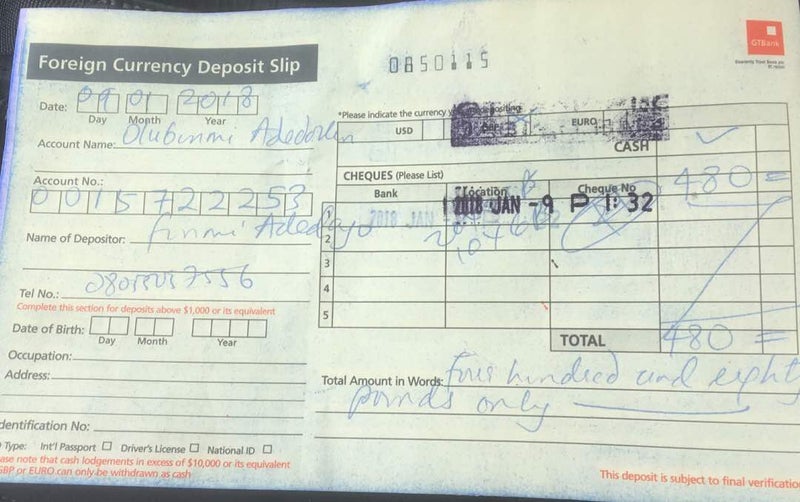 GTBank
Foreign Currency Deposit Slip
0850115
Date: 09 01 2018
Day Month Year
*Please indicate the currency
USD EURO
CASH
480 =
Account Name: Olubunmi
Account No.: 0015722253
CHEQUES (Please List)
Bank Location Cheque No
2018 JAN -9 P 1:32
2018 JAN
1
2
3
4
5
Name of Depositor: funmi Adedayo
Tel No.:
Complete this section for deposits above $1,000 or its equivalent
Date of Birth:
Day Month Year
TOTAL 480 =
Occupation:
Address:
Total Amount in Words: four hundred and eighty
pounds only
dentification No:
Type: Int'l Passport Driver's License National ID
ase note that cash lodgements in excess of $10,000 or its equivalent
GBP or EURO can only be withdrawn as cash
This deposit is subject to final verificatio